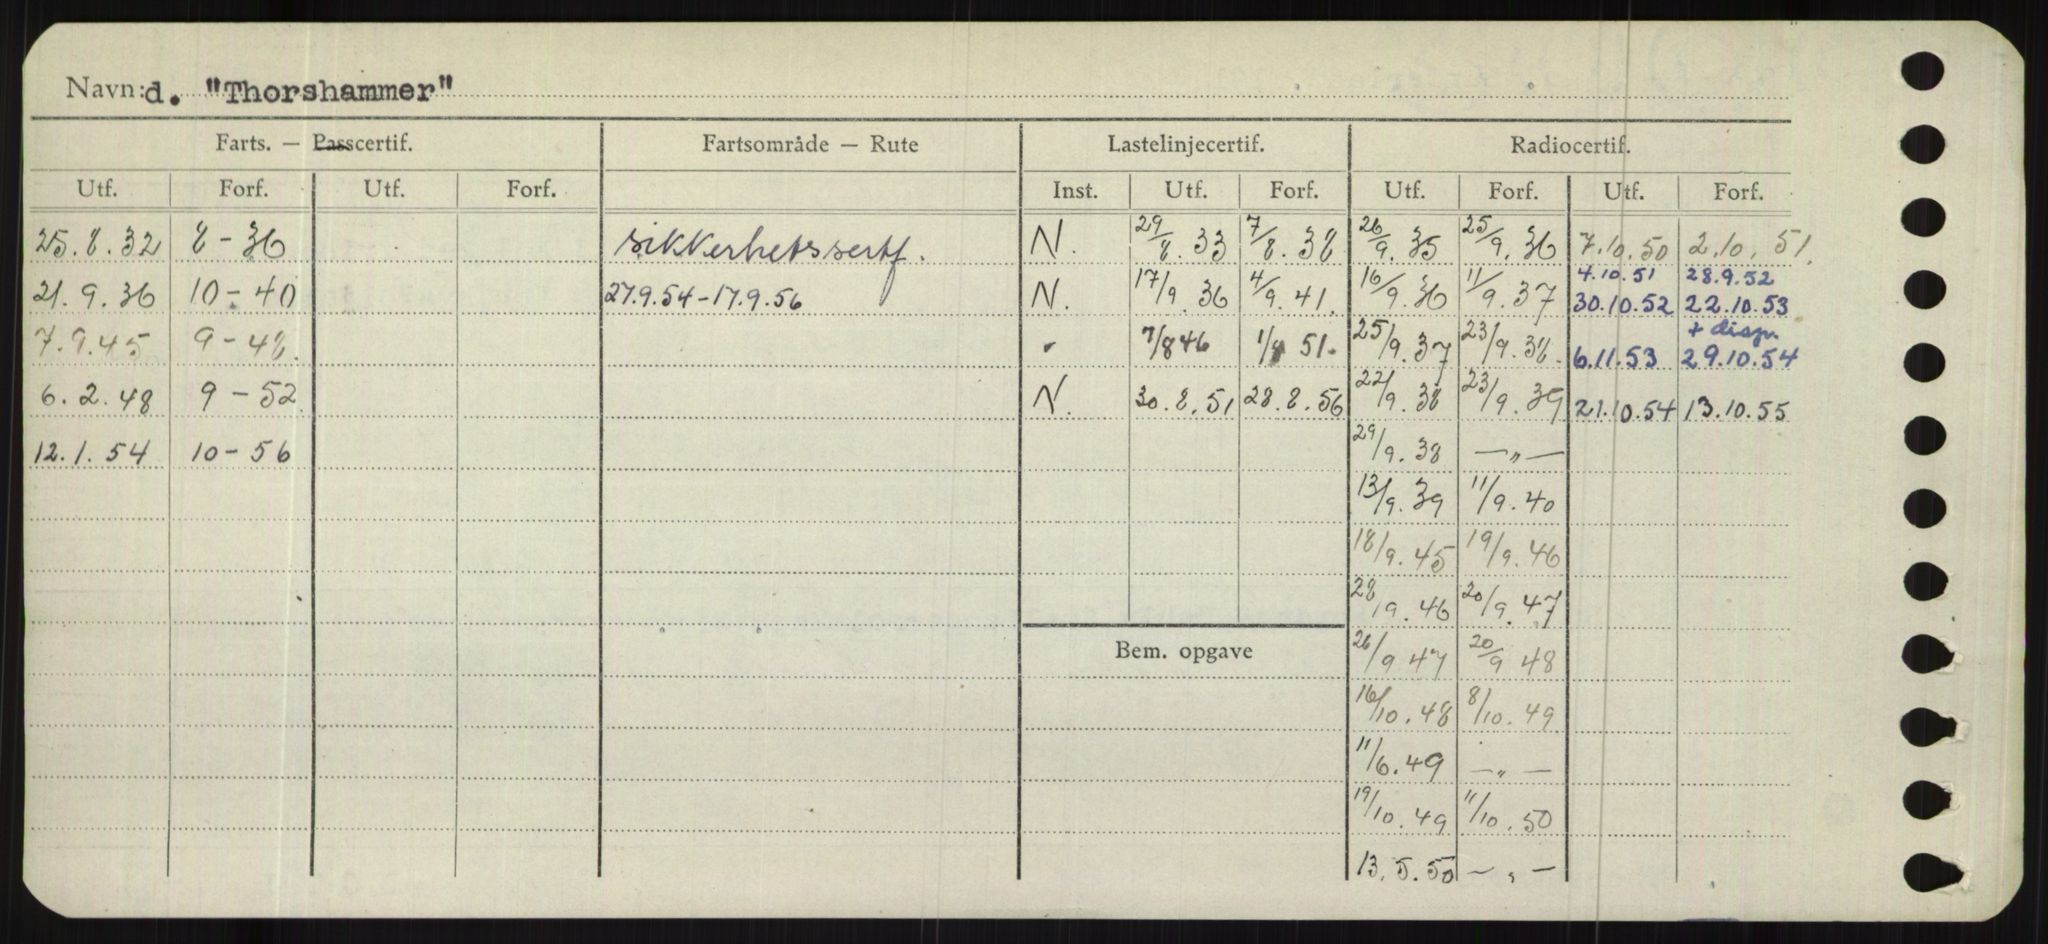 Navn: d. "Thorshammer"
Farts. — Passcertif. Fartsområde — Rute Lastelinjecertif. Radiocertif.
Utf. Forf. Utf. Forf. Inst. Utf. Forf. Utf. Forf. Utf. Forf.
25.8.32 8-36 sikkerhetssertf. N. 29/8.33 7/8.38 26/9.35 25/9.36 7.10.50 2.10.51.
4.10.51 28.9.52
21.9.36 10-40 27.9.54-17.9.56 N. 17/9.36 4/9.41. 16/9.36 11/9.37 30.10.52 22.10.53
+ disp.
7.9.45 9-48. " 7/8 46 1/8 51. 25/9.37 23/9.38. 6.11.53 29.10.54
6.2.48 9-52 N. 30.8.51 28.8.56 22/9.38 23/9.39 21.10.54 13.10.55
12.1.54 10-56 29/9.38 —„—
13/9.39 11/9.40
18/9.45 19/9.46
28/9.46 20/9.47
Bem. opgave 26/9 47 20/9 48
16/10.48 8/10.49
11/6.49 —„—
19/10.49 11/10.50
13.5.50 —„—